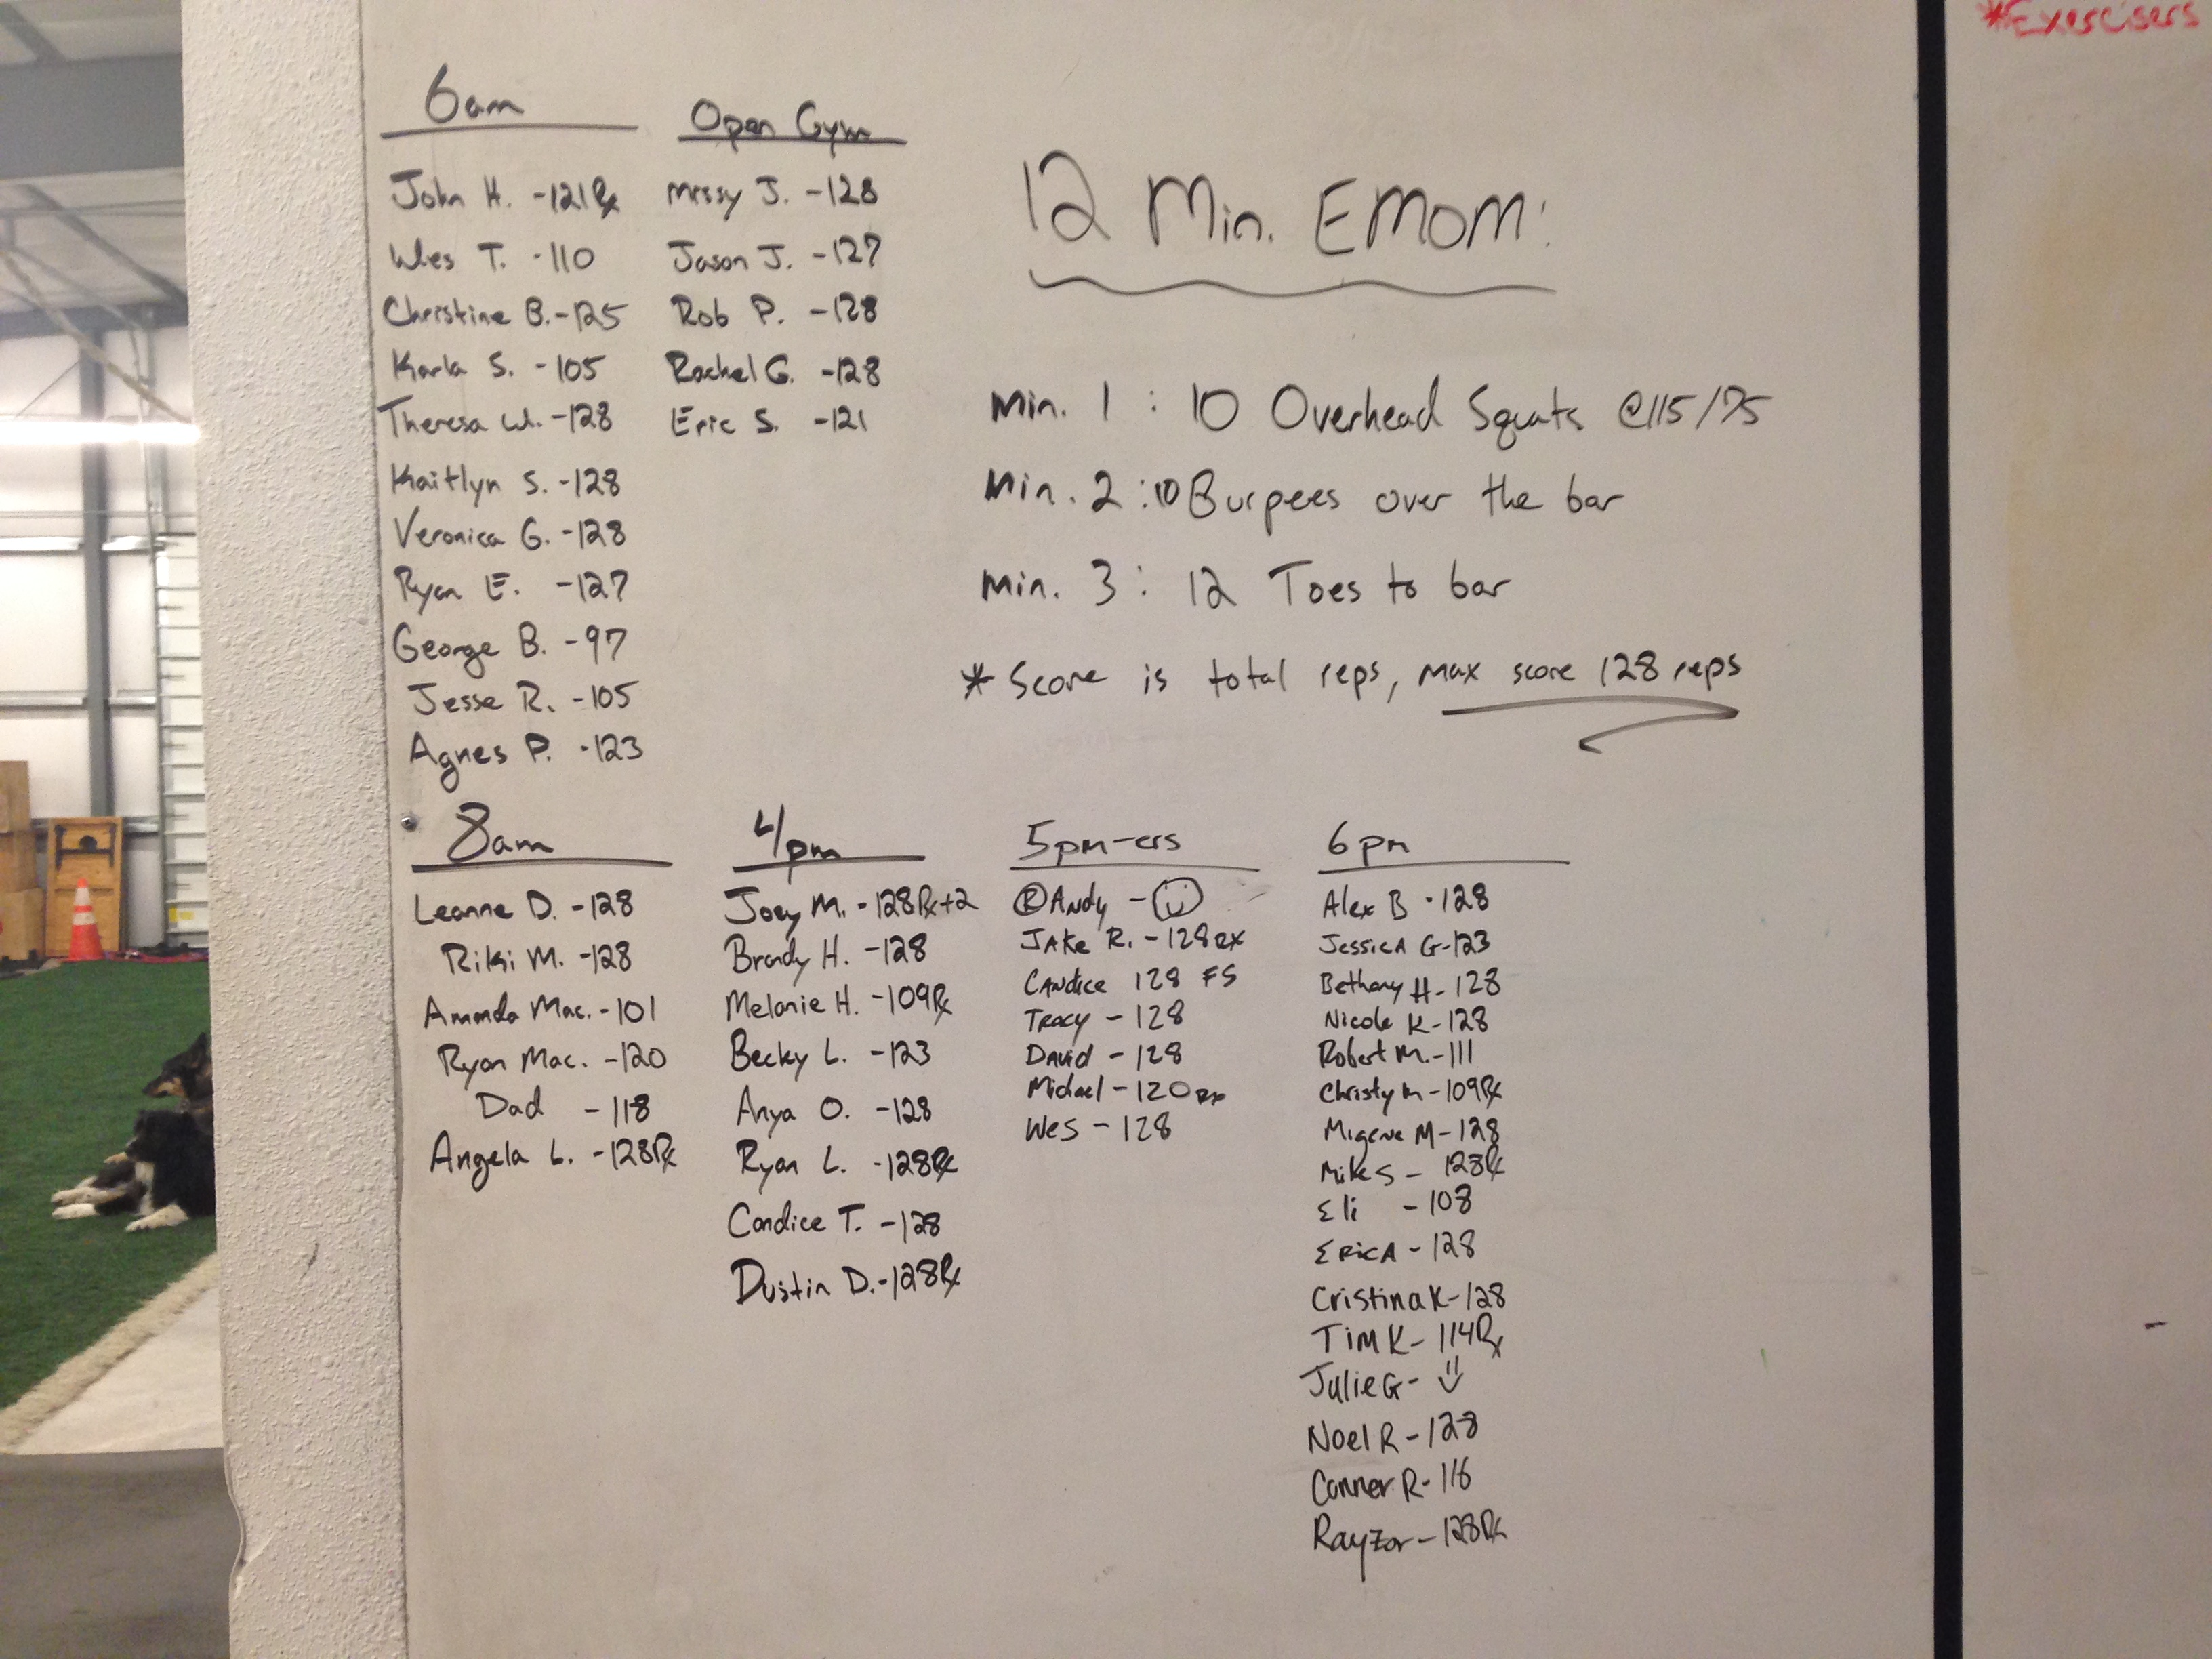 *Exercisers
6am
John H. -121 Rx
Wes T. -110
Christine B. -125
Karla S. -105
Theresa W. -128
Kaitlyn S. -128
Veronica G. -128
Ryan E. -127
George B. -97
Jesse R. -105
Agnes P. -123
Open Gym
Missy J. -128
Jason J. -127
Rob P. -128
Rachel G. -128
Eric S. -121
12 Min. EMOM:
Min. 1 : 10 Overhead Squats @115/75
Min. 2 : 10 Burpees over the bar
Min. 3 : 12 Toes to bar
* Score is total reps, max score 128 reps
8am
Leanne D. -128
Riki M. -128
Amanda Mac. -101
Ryan Mac. -120
Dad -118
Angela L. -128 Rx
4pm
Joey M. -128 Rx+2
Brady H. -128
Melanie H. -109 Rx
Becky L. -123
Anya O. -128
Ryan L. -128 Rx
Candice T. -128
Dustin D. -128 Rx
5pm-ers
®Andy -
JAke R. - 128 RX
CANdice 128 FS
TRACY - 128
DAVID - 128
Michael - 120 RX
Wes - 128
6pm
Alex B - 128
JessicA G - 123
Bethany H - 128
Nicole K - 128
Robert M. - 111
Christy M - 109 Rx
M - 128
Mike S - 128 Rx
Eli - 108
ERIC A - 128
Cristina K - 128
Tim K - 114 Rx
Julie G -
Noel R - 128
Conner R - 116
Rayzor - 128 Rx